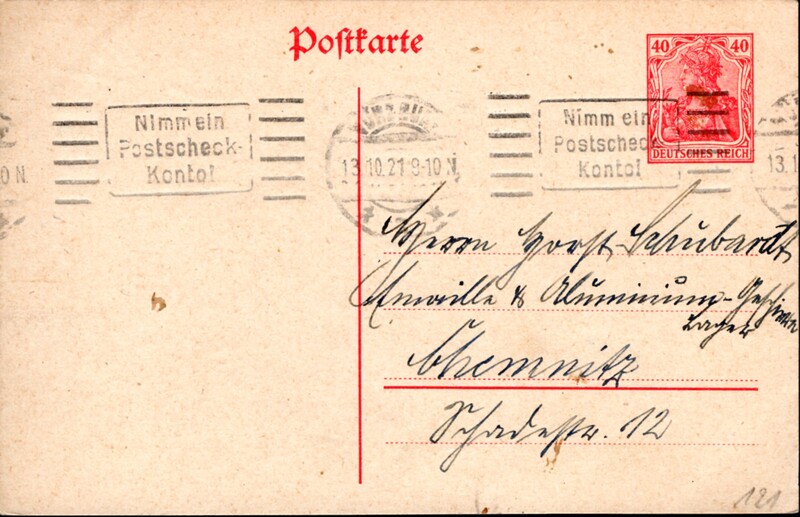 Postkarte
40 40
DEUTSCHES REICH
Nimm ein
Postscheck-
Konto!
13.10.21 9-10 N.
Nimm ein
Postscheck-
Konto!
0 N.
13.1
Herrn Horst Schubardt
Emaille & Aluminium-Geschirr
Lager
Chemnitz
Schadestr. 12
121